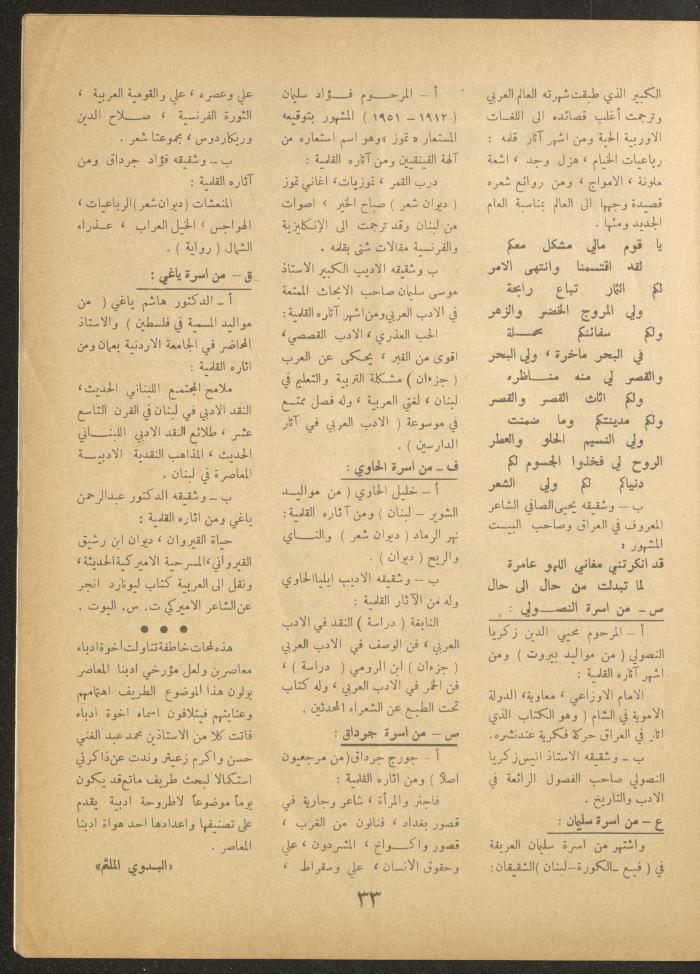 الكبير الذي طبقت شهرته العالم العربي
وترجمت أغلب قصائده الى اللغات
الاوربية الحية ومن اشهر آثار قلمه :
رباعيات الخيام ، هزل وجد ، اشعة
ملونة ، الامواج ، ومن روائع شعره
قصيدة وجهها الى العالم بمناسبة العام
الجديد ومنها .
يا قوم مالي مشكل معكم
لقد اقتسمنا وانتهى الامر
لكم الثمار تباع رابحة
ولي المروج الخضر والزهر
ولكم سفائنكم محملة
في البحر ماخرة ، ولي البحر
والقصر لي منه مناظره
ولكم اثاث القصر والقصر
ولكم مدينتكم وما ضمنت
ولي النسيم الحلو والعطر
الروح لي فخذوا الجسوم لكم
دنياكم لكم ولي الشعر
ب – وشقيقه يحيى الصافي الشاعر
المعروف في العراق وصاحب البيت
المشهور :
قد انكرتني مغاني اللهو عامرة
لما تبدلت من حال الى حال
س – من اسرة النصولي :
أ – المرحوم محيي الدين زكريا
النصولي ( من مواليد بيروت ) ومن
اشهر آثاره القلمية :
الامام الاوزاعي ، معاوية، الدولة
الاموية في الشام ( وهو الكتاب الذي
اثار في العراق حركة فكرية عند نشره .
ب – وشقيقه الاستاذ انيس زكريا
النصولي صاحب الفصول الرائعة في
الادب والتاريخ .
ع – من اسرة سليمان :
واشتهر من اسرة سليمان العريقة
في ( فيع – الكورة – لبنان ) الشقيقان :
أ – المرحوم فؤاد سليمان
( ١٩١٢ – ١٩٥١ ) المشهور بتوقيعه
المستعار « تموز » وهو اسم استعاره من
آلهة الفينقيين ومن آثاره القلمية :
درب القمر ، تموزيات، اغاني تموز
( ديوان شعر ) صباح الخير ، اصوات
من لبنان وقد ترجمت الى الإنكليزية
والفرنسية مقالات شتى بقلمه .
ب وشقيقه الاديب الكبير الاستاذ
موسى سليمان صاحب الابحاث الممتعة
في الادب العربي ومن اشهر آثاره القلمية:
الحب العذري ، الادب القصصي،
اقوى من القبر ، يحكى عن العرب
( جزءان ) مشكلة التربية والتعليم في
لبنان ، لغتي العربية ، وله فصل ممتع
في موسوعة ( الادب العربي في آثار
الدارسين ) .
ف – من اسرة الحاوي :
أ – خليل الحاوي ( من مواليد
الشوير – لبنان ) ومن آثاره القلمية:
نهر الرماد ( ديوان شعر ) والناي
والريح ( ديوان ) .
ب – وشقيقه الاديب ايليا الحاوي
وله من الآثار القلمية :
النابغة ( دراسة ) النقد في الادب
العربي ، فن الوصف في الادب العربي
( جزءان ) ابن الرومي ( دراسة ) ،
فن الخمر في الادب العربي ، وله كتاب
تحت الطبع عن الشعراء المحدثين .
ص – من اسرة جرداق :
أ – جورج جرداق ( من مرجعيون
اصلا ) ومن اثاره القلمية :
فاجنر والمرأة ، شاعر وجارية في
قصور بغداد ، فنانون من الغرب ،
قصور واكواخ ، المشردون ، علي
وحقوق الانسان ، علي وسقراط ،
علي وعصره ، علي والقومية العربية ،
الثورة الفرنسية ، صلاح الدين
وريكاردوس ، مجموعتا شعر .
ب – وشقيقه فؤاد جرداق ومن
آثاره القلمية :
المنعشات ( ديوان شعر ) الرباعيات ،
الهواجس ، الخيل العراب ، عذراء
الشمال ( رواية ) .
ق – من اسرة ياغي :
أ – الدكتور هاشم ياغي ( من
مواليد المسمية في فلسطين ) والاستاذ
المحاضر في الجامعة الاردنية بعمان ومن
اثاره القلمية :
ملامح المجتمع اللبناني الحديث،
النقد الادبي في لبنان في القرن التاسع
عشر ، طلائع النقد الادبي اللبناني
الحديث ، المذاهب النقدية الادبية
المعاصرة في لبنان .
ب – وشقيقه الدكتور عبد الرحمن
ياغي ومن اثاره القلمية :
حياة القيروان ، ديوان ابن رشيق
القيرواني، المسرحية الاميركية الحديثة،
ونقل الى العربية كتاب ليونارد انجر
عن الشاعر الاميركي ت. س. اليوت .
هذه لمحات خاطفة تناولت اخوة ادباء
معاصرين ولعل مؤرخي ادبنا المعاصر
يولون هذا الموضوع الطريف اهتمامهم
وعنايتهم فيتلافون اسماء اخوة ادباء
فاتت كلا من الاستاذين محمد عبد الغني
حسن واكرم زعيتر وندت عن ذاكرتي
استكمالا لبحث طريف ماتع قد يكون
يوماً موضوعاً لاطروحة ادبية يقدم
على تصنيفها واعدادها احد هواة ادبنا
المعاصر .
«البدوي الملثم»
٣٣